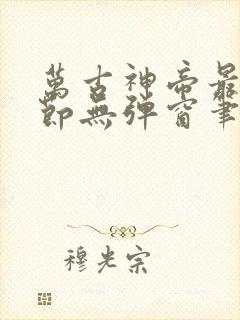 萬古神帝最
節無彈窗筆
穆光宗